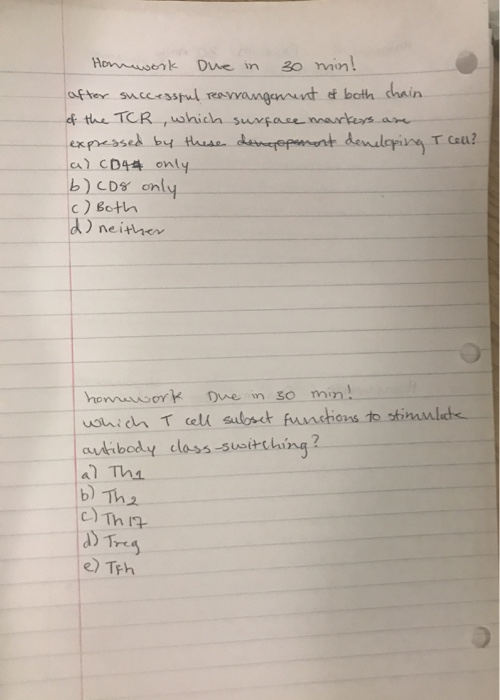 Homework Due in 30 min!
after successful rearrangement of both chain
of the TCR, which surface markers are
expressed by these developing T cell?
a) CD4 only
b) CD8 only
c) Both
d) neither
homework Due in 30 min!
which T cell subset functions to stimulate
antibody class-switching?
a) Th1
b) Th2
c) Th17
d) Treg
e) Tfh